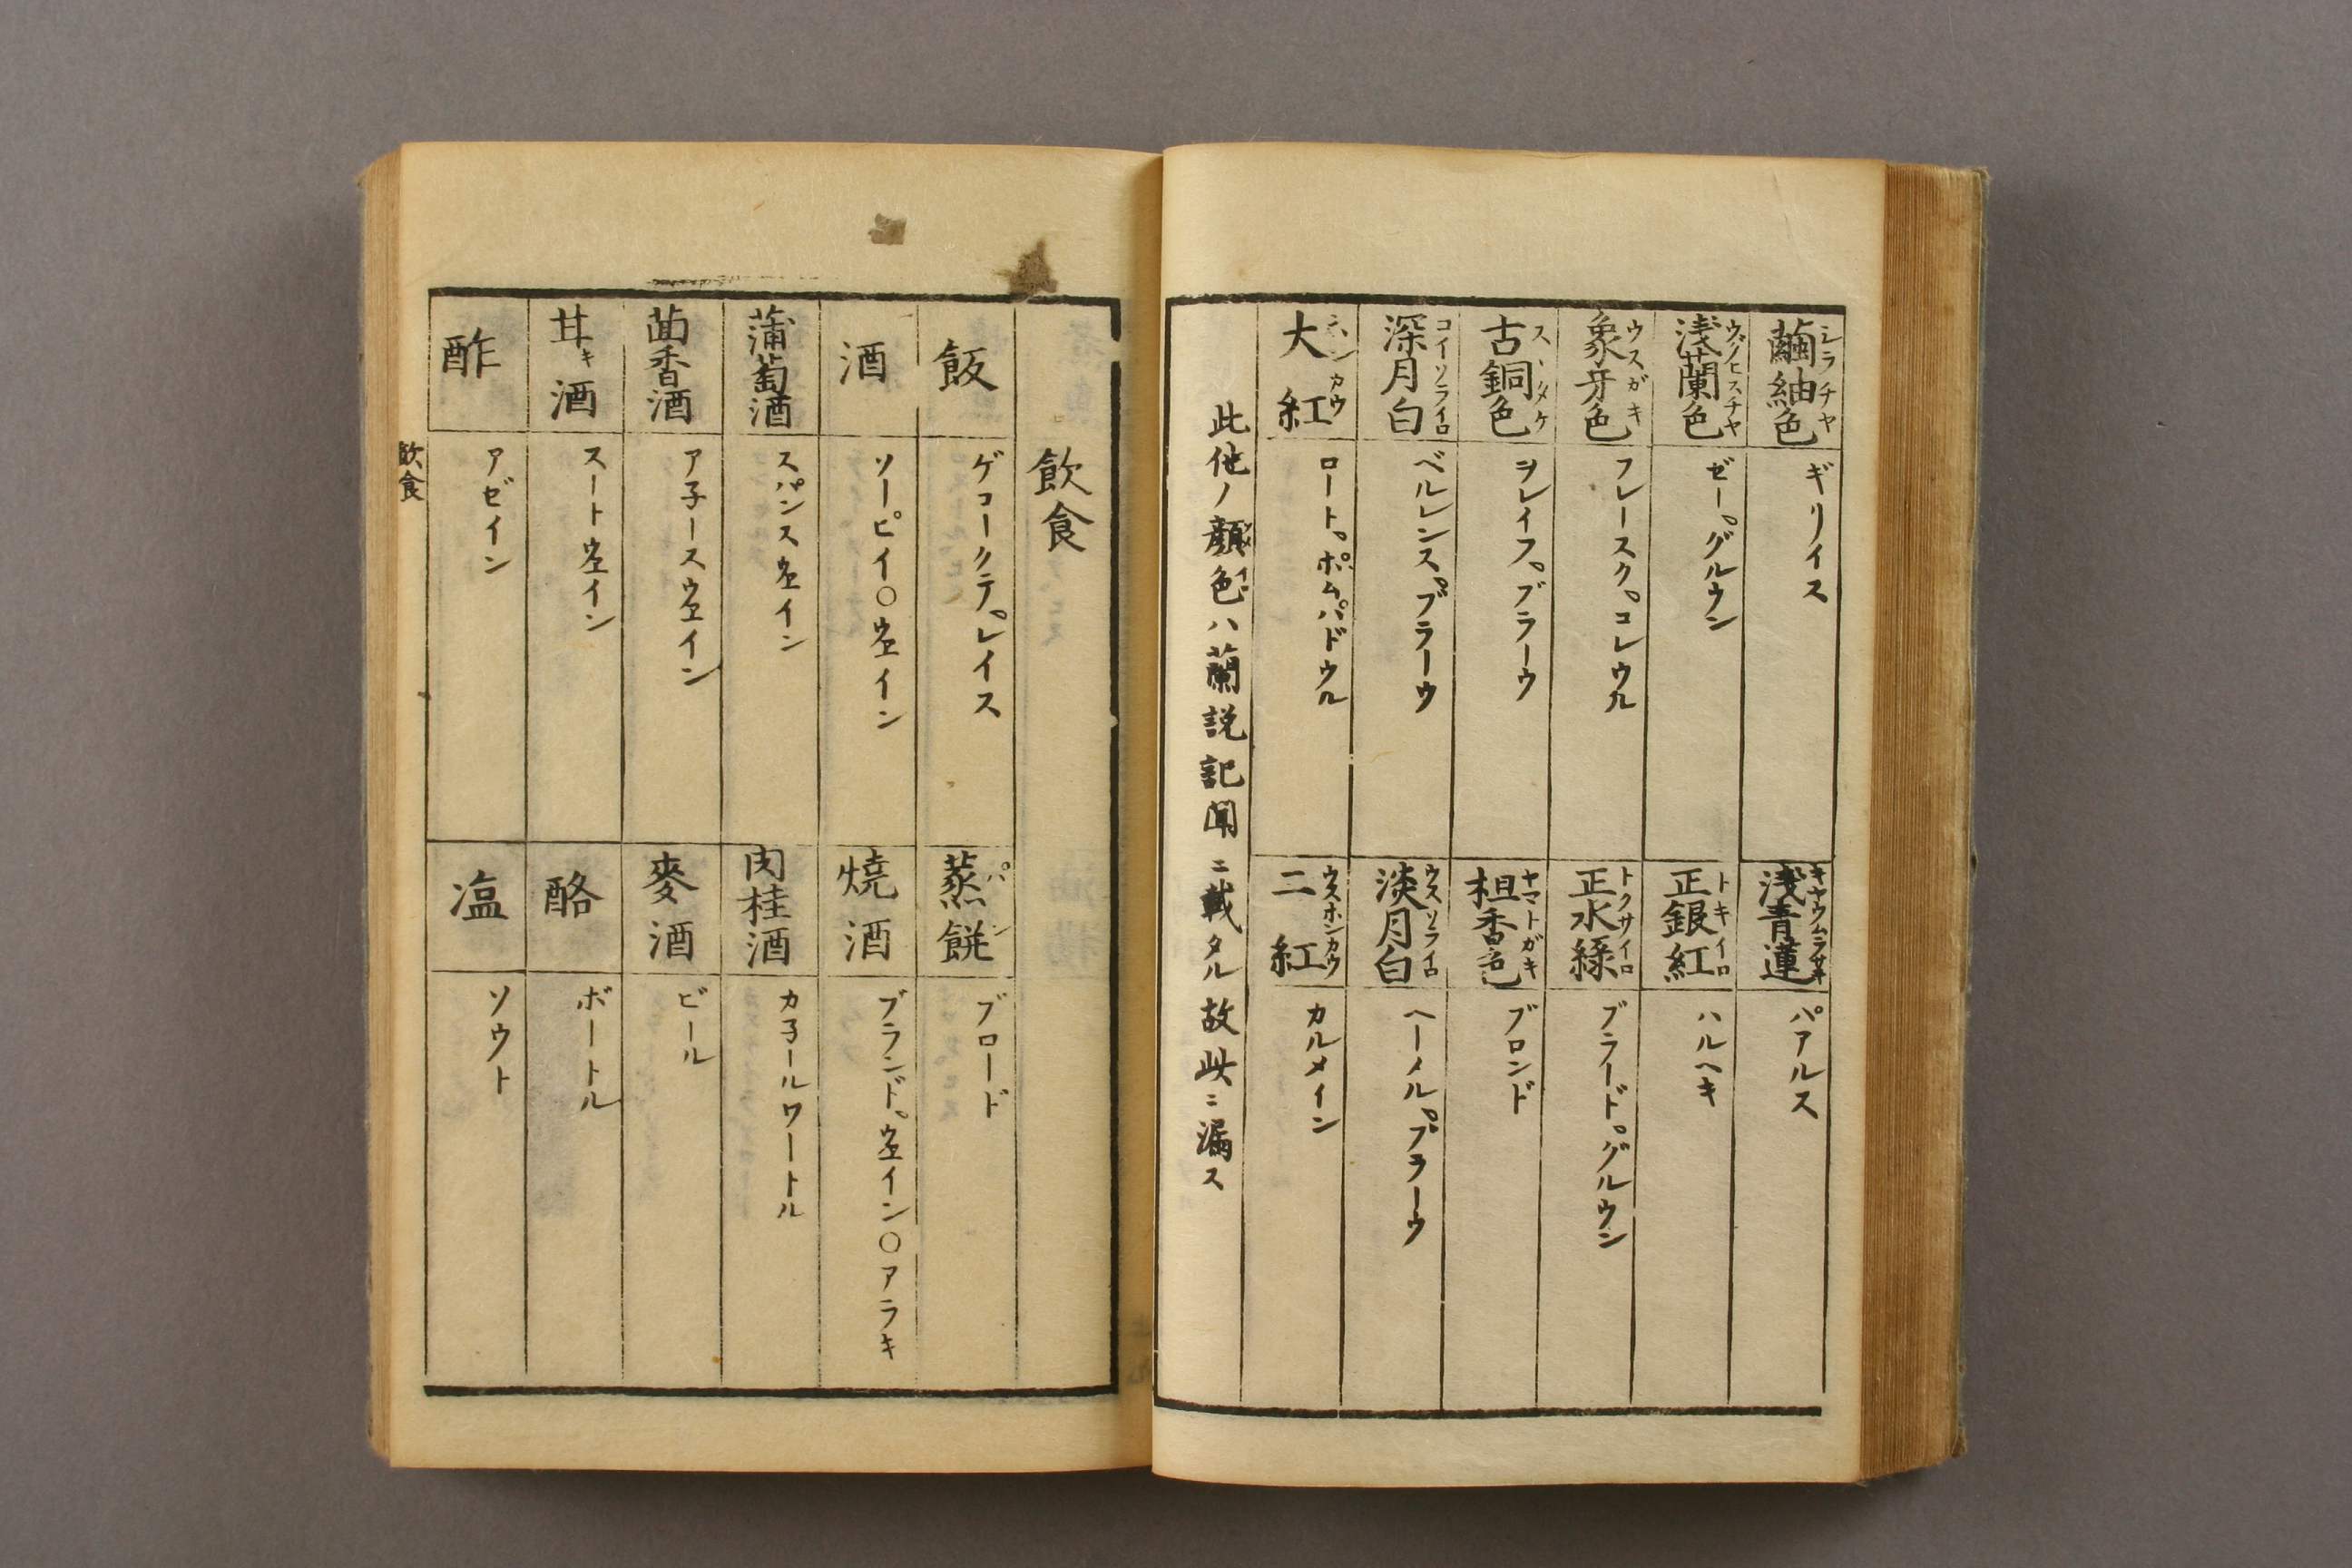 繭紬色 シラチヤ
ギリイス
浅青蓮
パアルス
浅蘭色 ウグヒスチヤ
ゼー。グルウン
正銀紅 トキイロ
ハルヘキ
象牙色 ウスガキ
フレースク。コレウル
正水緑 トクサイロ
ブラード。グルウン
古銅色 スヽタケ
ヲレイフ。ブラーウ
柦香色 ヤマトガキ
ブロンド
深月白 コイソライロ
ベルレンス。ブラーウ
淡月白 ウスソライロ
ヘーメル。ブラーウ
大紅
ロート。ポムパドウル
二紅 ウスホンカウ
カルメイン
此他ノ顔色ハ蘭説記聞ニ載タル故此ニ漏ス
飲食
飯
ゲコークテ。レイス
蒸餅 パン
ブロード
酒
ソーピイ〇ウエイン
焼酒
ブランド。ウエイン〇アラキ
蒲萄酒
スパンスウエイン
肉桂酒
カ子ールワートル
茴香酒
ア子ースウエイン
麥酒
ビール
甘キ酒
スートウエイン
酪
ボートル
酢
アゼイン
塩
ソウト
飲食